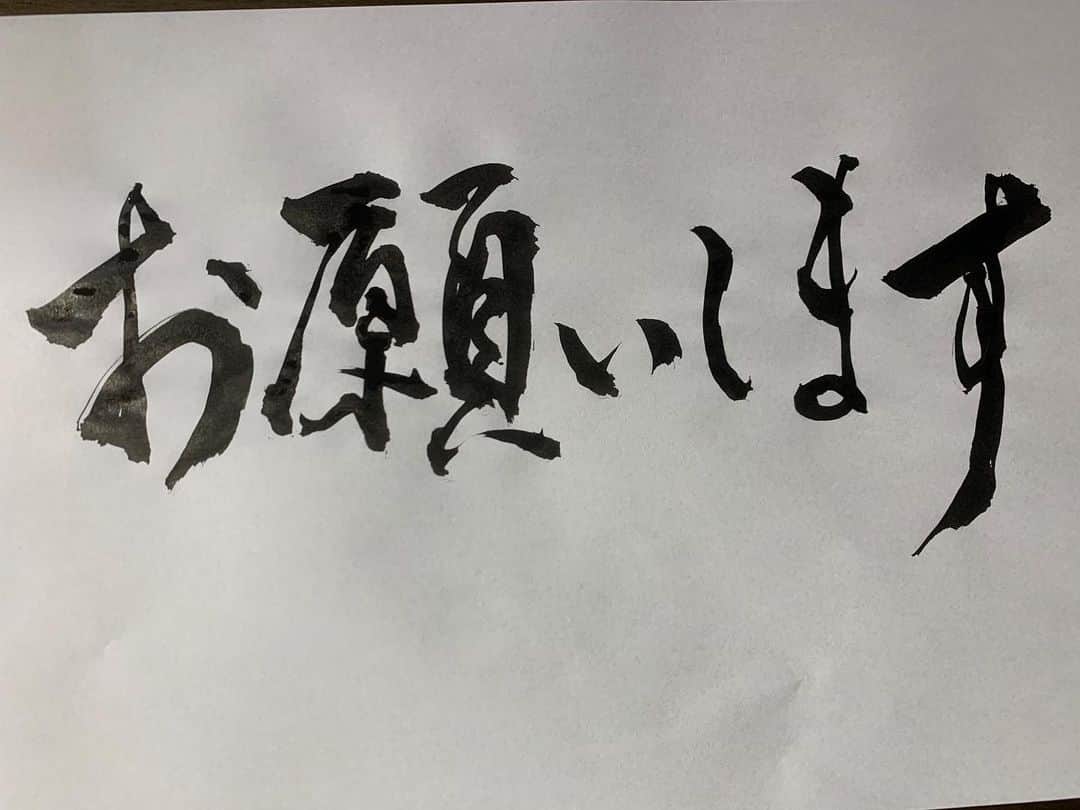 お願いします